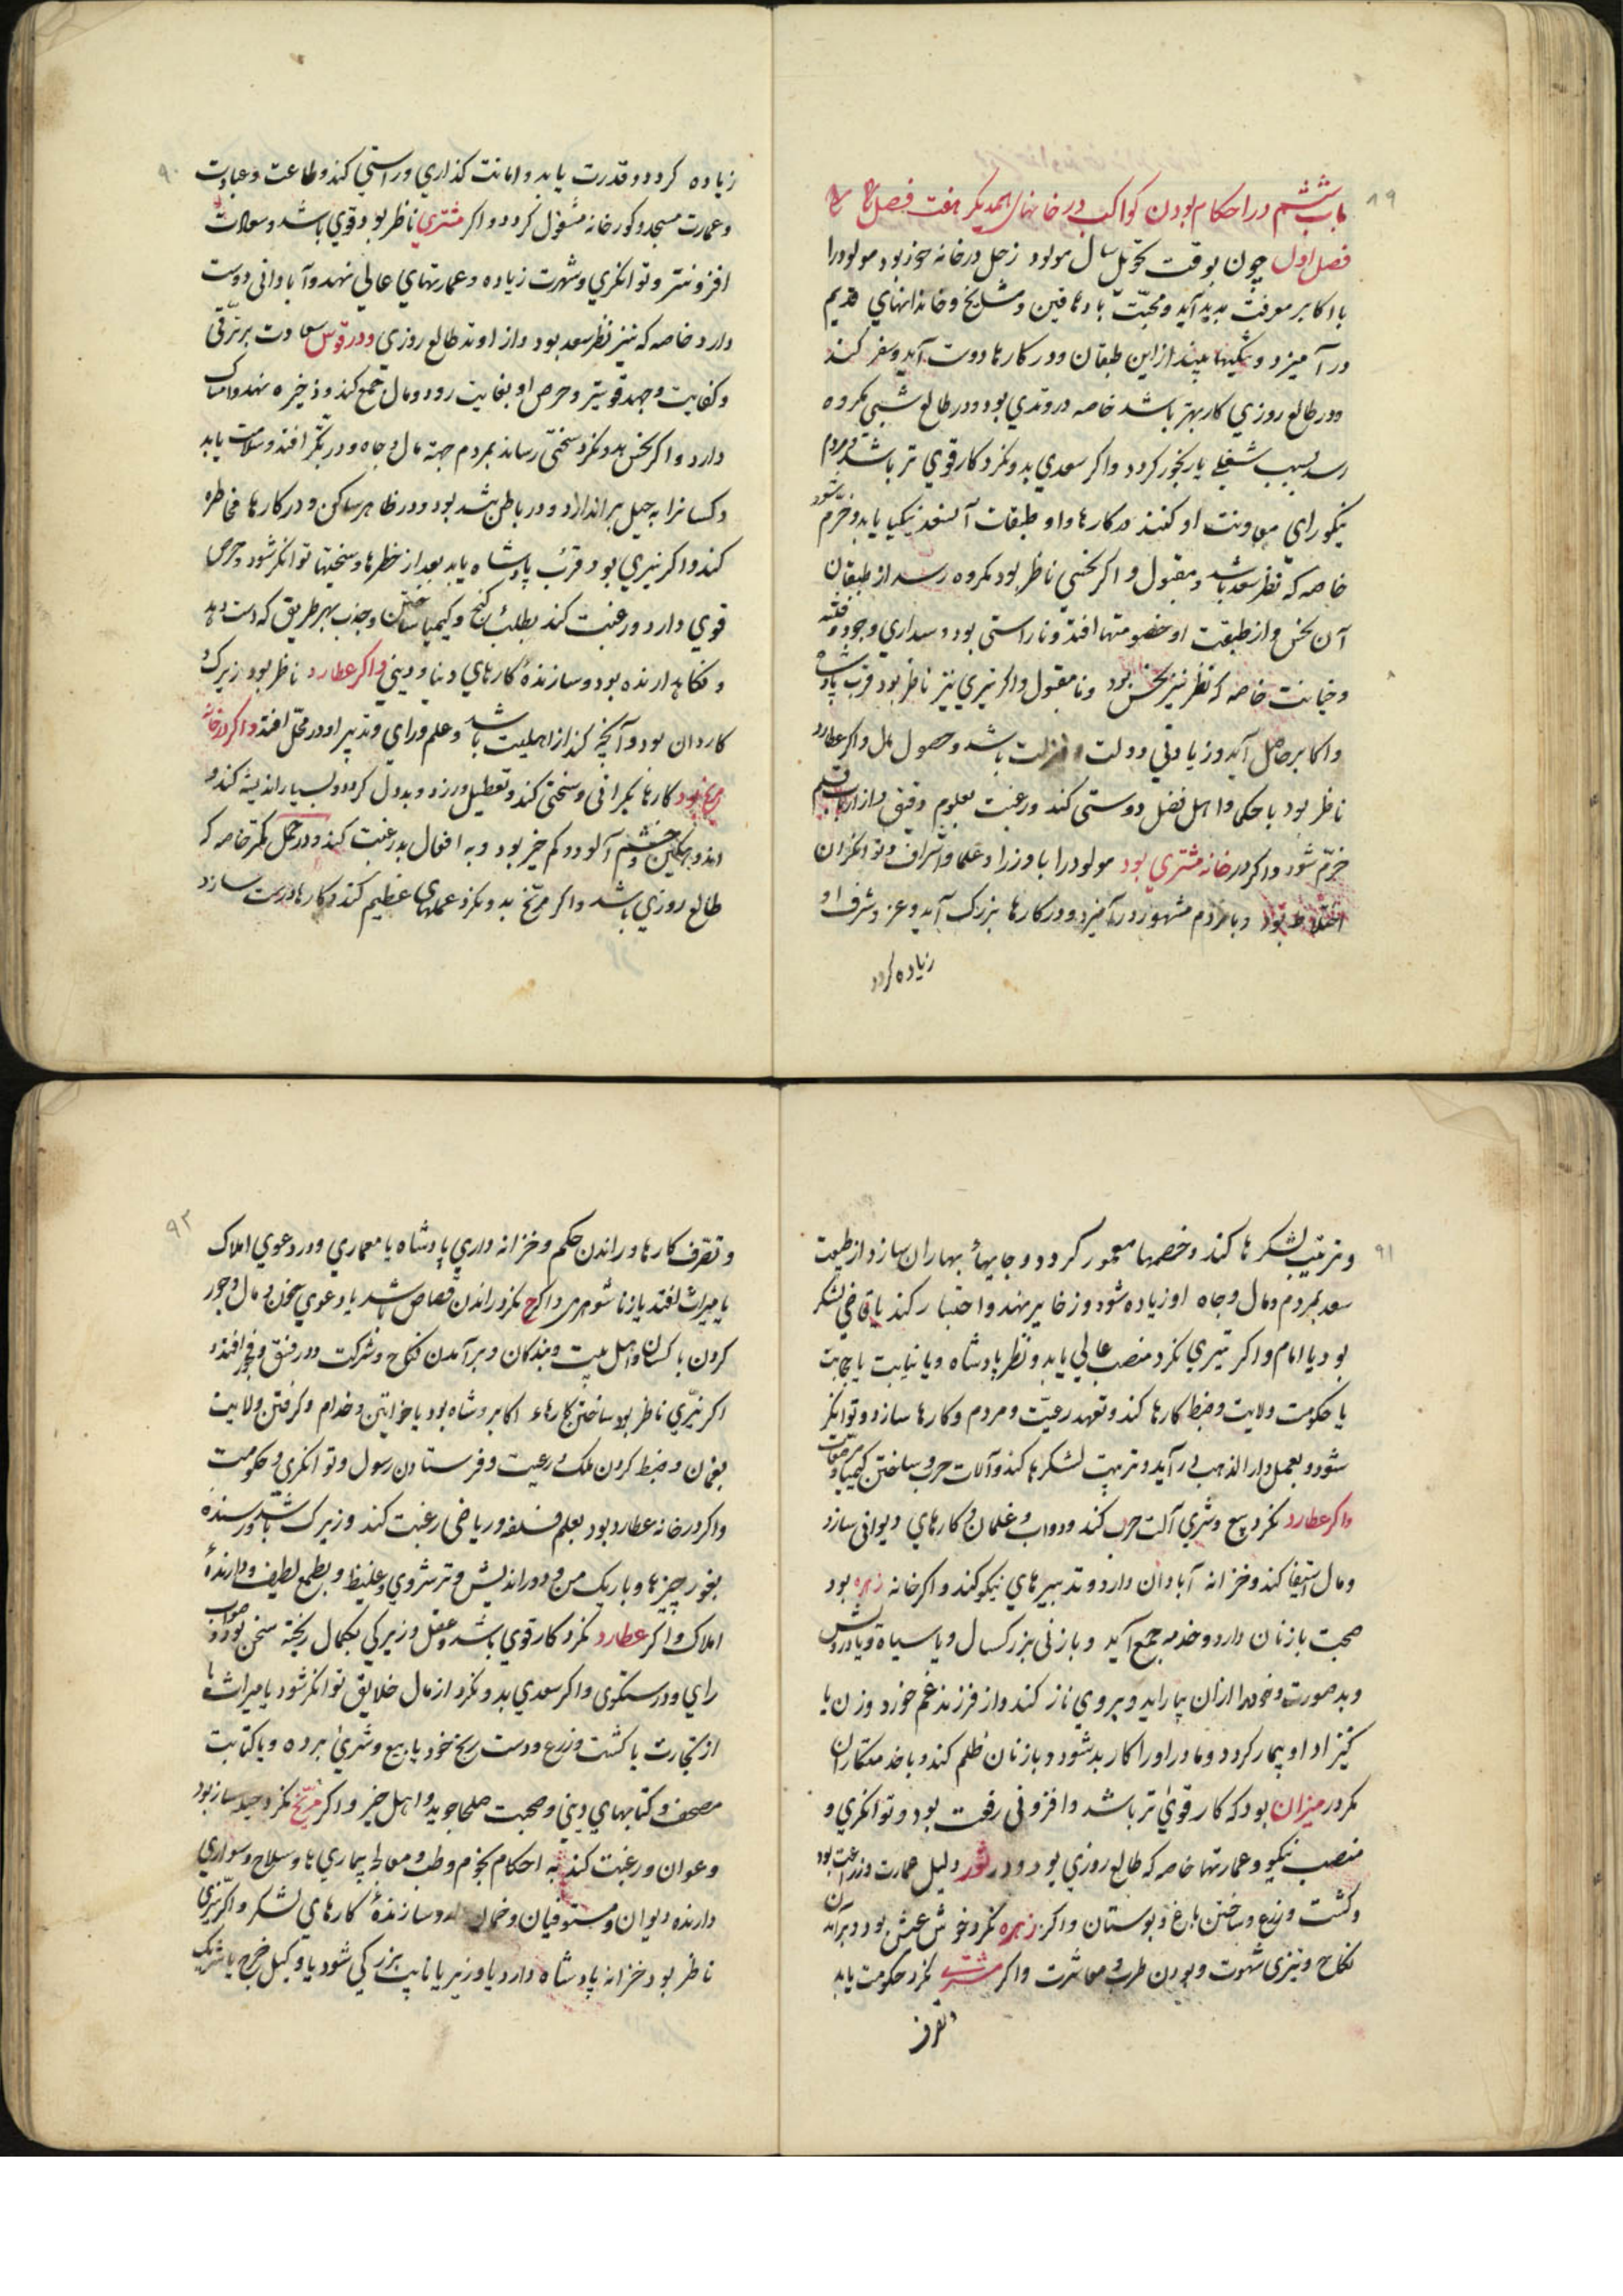 ۸۹
باب ششم در احکام بودن کواکب در خانهای همدیکر هفت فصل
فصل اول چون بوقت تحویل سال مولود زحل در خانه خود بود مولود را
با اکابر معرفت پدید آید و محبت با دهاقین و مشایخ و خاندانهای قدیم
در آمیزد و نیکیها بیند از این طبقان و در کارها دوست آید و سفر کند
و در طالع روزی کار بهتر باشد خاصه در وتدی بود و در طالع شبی مکروه
رسد بسبب شغلی یا رنجور کردد و اکر سعدی بدو نکرد کار قوی تر باشد و مردم
نیکورای معاونت او کنند در کارها و او طبقات آن سعد نیکیها یابد و خرم شود
خاصه که نظر سعد باشد و مقبول و اکر نحسی ناظر بود مکروه رسد از طبقان
آن نحس و از طبقت او خصومتها افتد و ناراستی بود و وفتنه
و خیانت خاصه که نظر نیز نحس بود و نامقبول و اکر نیری نیز ناظر بود قرب پادشاه
و اکابر حاصل آید و زیادتی دولت و منزلت باشد و حصول مال و اکر عطارد
ناظر بود با حکما و اهل فضل دوستی کند و رغبت بعلوم دقیق و از ارباب قلم
خرم شود و اکر در خانه مشتری بود مولود را با وزرا و علما و اشراف و توانکران
اختلاط بود و با مردم مشهور در آمیزد و در کارها بزرک آید و عز و شرف او
زیاده کردد
۹۰
زیاده کردد و قدرت یابد و امانت کذاری و راستی کند و طاعت و عبادت
و عمارت مسجد و کورخانه مشغول کردد و اکر مشتری ناظر بود قوی باشد و سعادت
افزونتر و توانکری و شهرت زیاده و عمارتهای عالی نهد و آبادانی دوست
دارد خاصه که نیز نظر سعد بود و از اوتد طالع روزی و در قوس سعادت برترقی
و کفایت وجهد قویتر و حرص او بغایت رود و مال جمع کند و ذخیره نهد و امساک
دارد و اکر نحس بدو نکرد سختی رساند بمردم جهة مال و جاه و در افتد و سلامت یابد
و کسانرا به حیل براندازد و در باطن بد بود و در ظاهر ساکن و در کارها مخاطره
کند و اکر نیری بود قرب پادشاه یابد بعد از خطرها و سختیها توانکر شود و حرص
قوی دارد و رغبت کند بطلب کنج و کیمیا ساختن و جذب بهر طریق که دست دهد
و نکاهدارنده بود و سازندهٔ کارهای دنیا و دینی و اکر عطارد ناظر بود زیرک و
کاردان بود و آنچه کند از اهلیت باشد و علم و رای و تدبیر او در محل افتد و اکر در خانه
مریخ بود کارها بکرانی و سختی کند و تعطیل ورزد و بددل کردد و بسیار اندیشه کند و
اندوهکین و خشم آلود و کم خیر بود و به افعال بد رغبت کند و در حمل کمتر خاصه که
طالع روزی باشد و اکر مریخ بدو نکرد عملهای عظیم کند و کارها درست سازد
۹۱
و ترتیب لشکرها کند و خصمها مقهور کردد و جایها سازد از طبیعت
سعد بمردم و مال و جاه او زیاده شود و ذخایر نهد و احتساب کند یا قاضی لشکر
بود یا امام و اکر نیری نکرد منصب عالی یابد و نظر پادشاه و یا نیابت یا حجابت
یا حکومت ولایت و ضبط کارها کند و تعهد رعیت و مردم و کارها سازد و توانکر
شود و بعمل دار الذهب در آید و ترتیب لشکرها کند و آلات حرب و ساختن کیمیا
و اکر عطارد نکرد بیع و شری آلت حرب کند و دواب و غلمان و کارهای دیوانی سازد
و مال استیفا کند و خزانه آبادان دارد و تدبیرهای نیکو کند و اکر خانه زهره بود
صحبت با زنان دارد و خدم جمع آید و با زنی بزرکسال و یا سیاه و یا درویش
و بد صورت و خود را از آن بیاراید و بروی ناز کند و از فرزند غم خورد و زن یا
کنیزاد او بیمار کردد و مادر او را کار بد شود و با زنان ظلم کند و با خدمتکاران
مکر در میزان بود که کار قوی تر باشد و افزونی رفعت بود و توانکری و
منصب نیکو و عمارتها خاصه که طالع روزی بود و در ثور دلیل عمارت و زراعت بود
و کشت و زرع و ساختن باغ و بوستان و اکر زهره نکرد خوش عیش بود و برآمدن
نکاح و تیزی شهوت و بودن طرب و معاشرت و اکر مشتری نکرد حکومت یابد
و تصرف
۹۲
و تصرف کارها و راندن حکم و خزانه داری پادشاه یا معماری و در دعوی املاک
یا میراث افتد یا زناشوهری و اکر مریخ نکرد راندن قصاص باشد یا دعوی خون و مال و جور
کردن با کسان و اهل بیت و بندکان و برآمدن نکاح و شرکت و در فسق و فجور افتد و
اکر نیری ناظر بود ساختن کارهاء اکابر و شاه بود یا خواتین و خدام و کرفتن ولایت
بفرمان و ضبط کردن ملک و رعیت و فرستادن رسول و توانکری و حکومت
و اکر در خانه عطارد بود بعلم فلسفه و ریاضی رغبت کند و زیرک باشد و رسنده
بغور چیزها و باریک بین و دوراندیش و ترشروی و غلیظ و بطمع لطیف و دارندهٔ
املاک و اکر عطارد نکرد کار قوی باشد و عقل و زیرکی بکمال ریخته سخن بود و صواب
رای و درستکوی و اکر سعدی بدو نکرد از مال خلایق توانکر شود یا میراث یا
از تجارت یا کشت و زرع و دست رنج خود یا بیع و شری برده و یا کتابت
مصحف و کتابهای دینی و صحبت صلحا جوید و اهل خیر و اکر مریخ نکرد حیله ساز بود
و عوان و رغبت کند به احکام نجوم و طب و معالجه بیماریها و سلاح و سواری
دارنده دیوان و مستوفیان و سازندهٔ کارهای لشکر و اکر نیری
ناظر بود خزانه پادشاه دارد یا وزیر یا نایب بزرکی شود یا وکیل خرج یا شریک